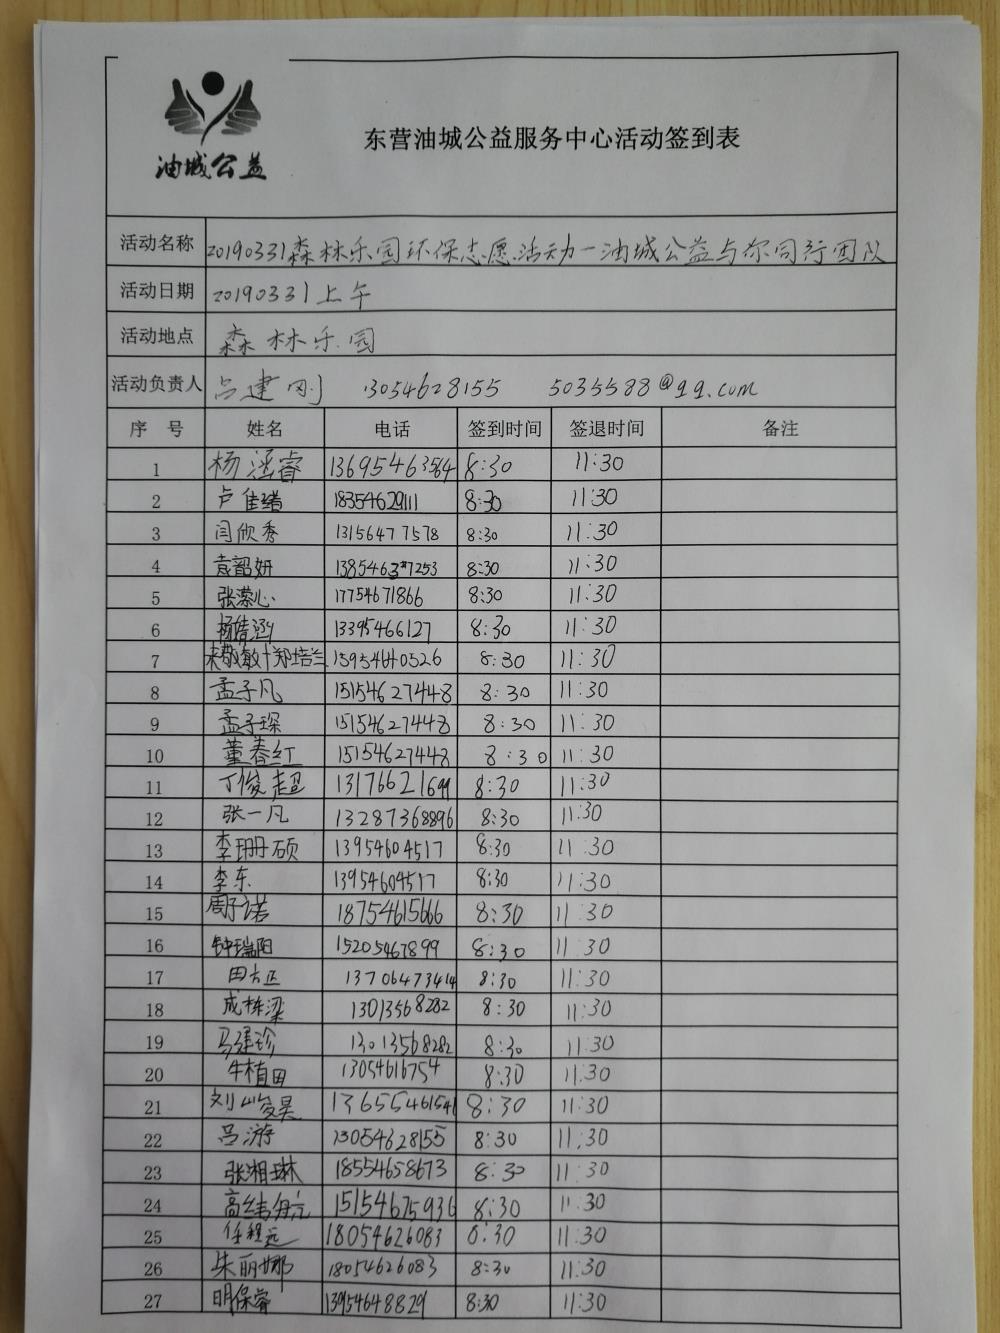 油城公益
东营油城公益服务中心活动签到表
活动名称 20190331森林乐园环保志愿活动—油城公益与你同行团队
活动日期 20190331上午
活动地点 森林乐园
活动负责人 吕建刚 13054628155 5035588@qq.com
序号 姓名 电话 签到时间 签退时间 备注
1 杨涵睿 13695463564 8:30 11:30
2 卢佳绪 18354629111 8:30 11:30
3 闫欣秀 13156477578 8:30 11:30
4 袁韶妍 8:30 11:30
5 张潆心 17754671866 8:30 11:30
6 杨皓涵 13395466127 8:30 11:30
7 郑培兰 15954640526 8:30 11:30
8 孟子凡 15154627448 8:30 11:30
9 孟子琛 15154627448 8:30 11:30
10 董春红 15154627448 8:30 11:30
11 丁俊超 13176621699 8:30 11:30
12 张一凡 13287368896 8:30 11:30
13 李珊硕 13954604517 8:30 11:30
14 李东 13954604517 8:30 11:30
15 周子诺 18754615666 8:30 11:30
16 钟瑞阳 15205467899 8:30 11:30
17 田方正 13706473414 8:30 11:30
18 成栋梁 13013568282 8:30 11:30
19 马建珍 13013568282 8:30 11:30
20 牛植田 13054616754 8:30 11:30
21 刘峻昊 13655461541 8:30 11:30
22 吕游 13054628155 8:30 11:30
23 张湘琳 18554658673 8:30 11:30
24 高纬航 15154675936 8:30 11:30
25 任程远 18054626083 8:30 11:30
26 朱丽娜 18054626083 8:30 11:30
27 明保睿 13954648829 8:30 11:30